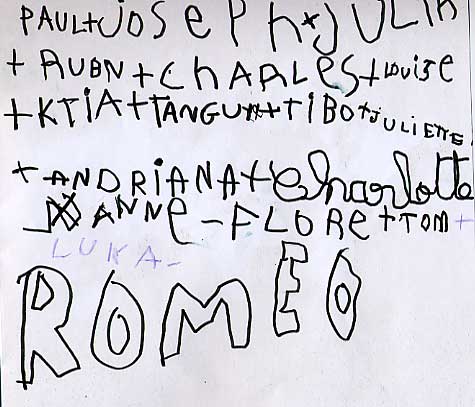 PAUL+JOSEPH+JULIA
+RUBN+CHARLES+LOUISE
+KTIA+TANGUY+TIBO+JULIETTE
+ANDRIANA+Charlotte
ANNE-FLORE+TOM+
LUKA-
ROMEO